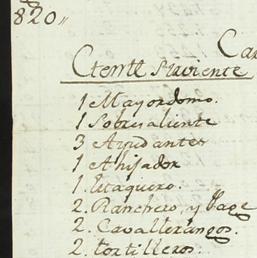 820,,
Ca
Sirviente
1 Mayordomo.
1 Sobresaliente
3 Ayudantes
1 Ahijador
1 Vaquero.
2. Ranchero, y Page
2. Cavallerangos.
2. tortilleros.